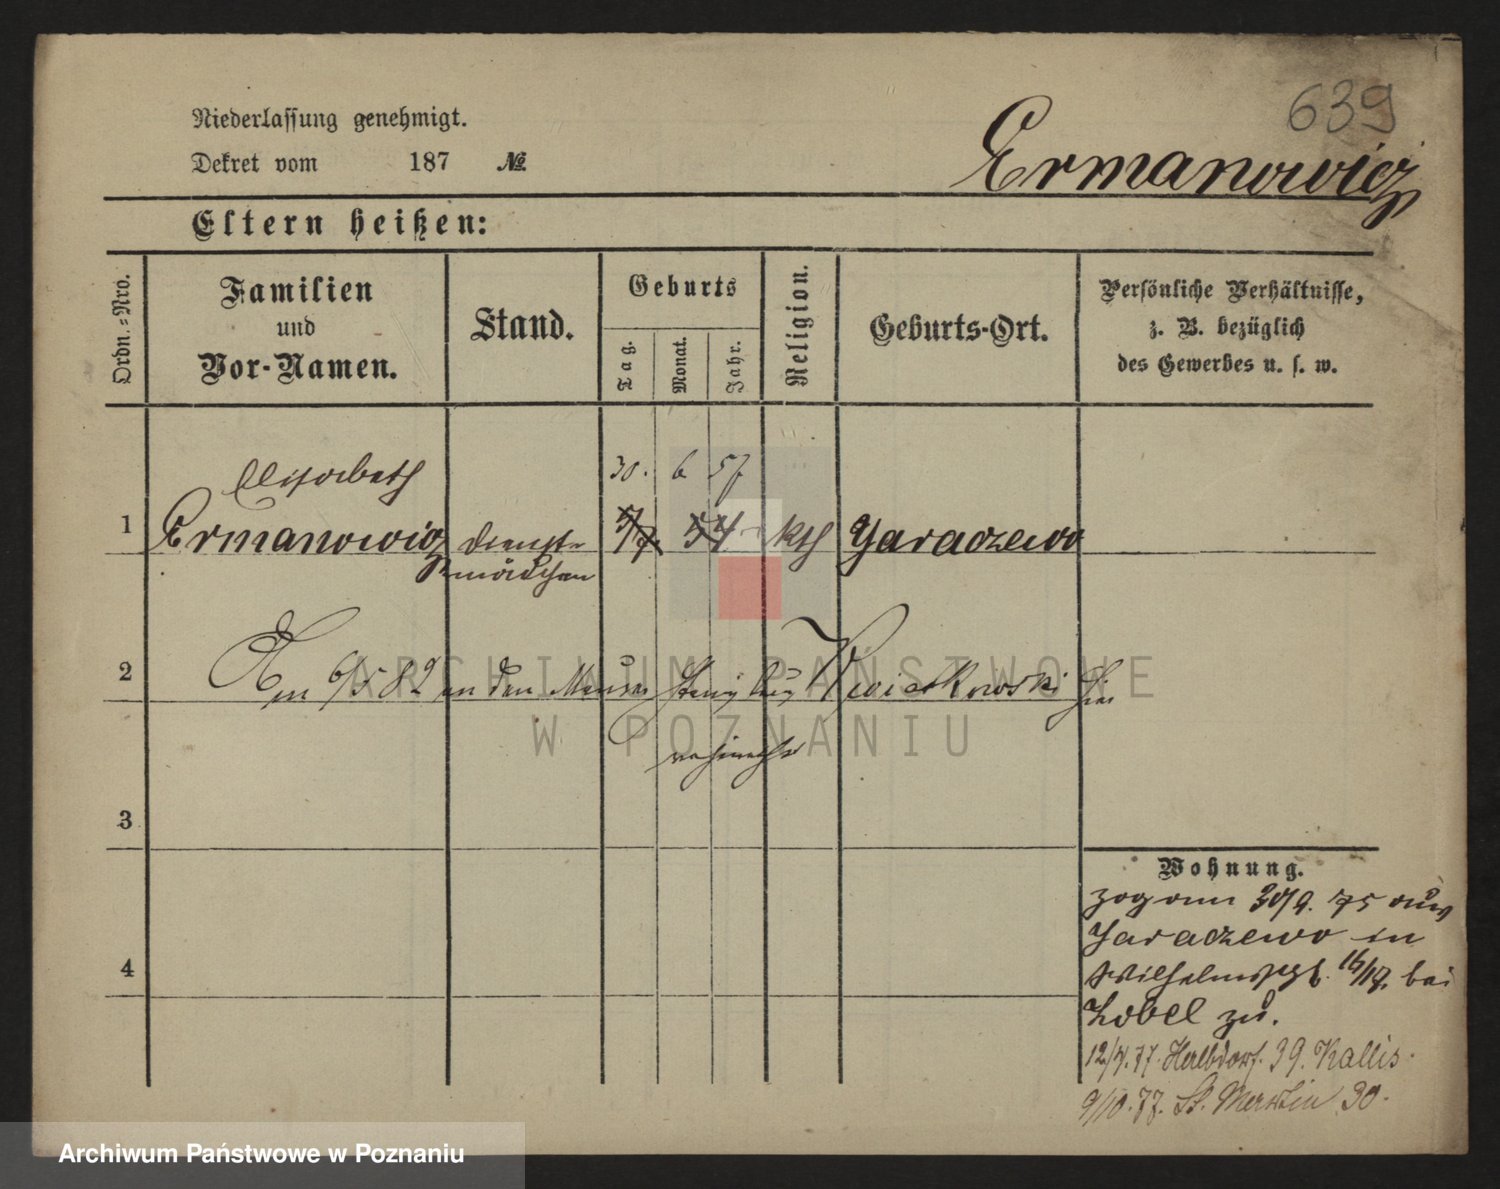 639
Niederlassung genehmigt.
Ermanowicz
Dekret vom 187 №
Eltern heißen:
Ordn.=Nro.
Familien
und
Vor-Namen.
Stand.
Geburts
Tag.
Monat.
Jahr.
Religion.
Geburts-Ort.
Persönliche Verhältnisse,
z. B. bezüglich
des Gewerbes u. s. w.
Elisabeth 30. 6 57
1 Ermanowicz Dienst= 54 kth Jaraczewo
mädchen
2 Am 6/5 82 an den Maurer Kwiatkowski hier
verheirathet
3
4
Wohnung.
zog am 30/9. 75 aus
Jaraczewo in
Wilhelmspl. 16/17. bei
Lobel zu.
12/4. 77. Halbdorf. 39. Kallis.
9/10. 77. St. Martin 30.
ARCHIWUM PAŃSTWOWE
W POZNANIU
Archiwum Państwowe w Poznaniu